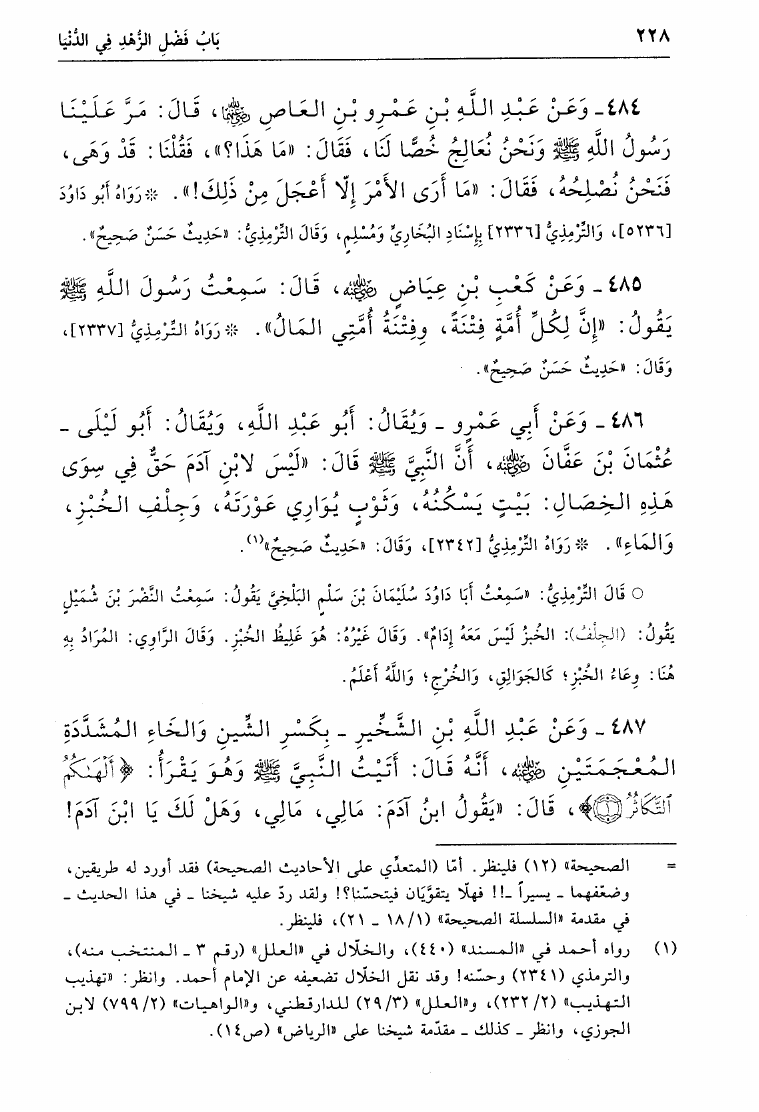 ٢٢٨ بَابُ فَضْلِ الزُّهْدِ فِي الدُّنْيَا
٤٨٤ - وَعَنْ عَبْدِ اللَّهِ بْنِ عَمْرِو بْنِ العَاصِ رضي الله عنهما، قَالَ: مَرَّ عَلَيْنَا
رَسُولُ اللَّهِ ﷺ وَنَحْنُ نُعَالِجُ خُصًّا لَنَا، فَقَالَ: «مَا هَذَا؟»، فَقُلْنَا: قَدْ وَهَى،
فَنَحْنُ نُصْلِحُهُ، فَقَالَ: «مَا أَرَى الأَمْرَ إِلَّا أَعْجَلَ مِنْ ذَلِكَ!». * رَوَاهُ أَبُو دَاوُدَ
[٥٢٣٦]، وَالتِّرْمِذِيُّ [٢٣٣٦] بِإِسْنَادِ البُخَارِيِّ وَمُسْلِمٍ، وَقَالَ التِّرْمِذِيُّ: «حَدِيثٌ حَسَنٌ صَحِيحٌ».
٤٨٥ - وَعَنْ كَعْبِ بْنِ عِيَاضٍ رضي الله عنه، قَالَ: سَمِعْتُ رَسُولَ اللَّهِ ﷺ
يَقُولُ: «إِنَّ لِكُلِّ أُمَّةٍ فِتْنَةً، وفِتْنَةُ أُمَّتِي المَالُ». * رَوَاهُ التِّرْمِذِيُّ [٢٣٣٧]،
وَقَالَ: «حَدِيثٌ حَسَنٌ صَحِيحٌ».
٤٨٦ - وَعَنْ أَبِي عَمْرٍو - وَيُقَالُ: أَبُو عَبْدِ اللَّهِ، وَيُقَالُ: أَبُو لَيْلَى -
عُثْمَانَ بْنَ عَفَّانَ رضي الله عنه، أَنَّ النَّبِيَّ ﷺ قَالَ: «لَيْسَ لابْنِ آدَمَ حَقٌّ فِي سِوَى
هَذِهِ الخِصَالِ: بَيْتٍ يَسْكُنُهُ، وَثَوْبٍ يُوَارِي عَوْرَتَهُ، وَجِلْفِ الخُبْزِ،
وَالمَاءِ». * رَوَاهُ التِّرْمِذِيُّ [٢٣٤٢]، وَقَالَ: «حَدِيثٌ صَحِيحٌ»(١).
○ قَالَ التِّرْمِذِيُّ: «سَمِعْتُ أَبَا دَاوُدَ سُلَيْمَانَ بْنَ سَلْمٍ البَلْخِيَّ يَقُولُ: سَمِعْتُ النَّضْرَ بْنَ شُمَيْلٍ
يَقُولُ: (الجِلْفُ): الخُبزُ لَيْسَ مَعَهُ إِدَامٌ». وَقَالَ غَيْرُهُ: هُوَ غَلِيظُ الخُبْزِ. وَقَالَ الرَّاوِي: المُرَادُ بِهِ
هُنَا: وِعَاءُ الخُبْزِ؛ كَالجَوَالِقِ، وَالخُرْجِ؛ وَاللَّهُ أَعْلَمُ.
٤٨٧ - وَعَنْ عَبْدِ اللَّهِ بْنِ الشِّخِّيرِ - بِكَسْرِ الشِّينِ وَالخَاءِ المُشَدَّدَةِ
المُعْجَمَتَيْنِ رضي الله عنه، أَنَّهُ قَالَ: أَتَيْتُ النَّبِيَّ ﷺ وَهُوَ يَقْرَأُ: ﴿أَلْهَىٰكُمُ
ٱلتَّكَاثُرُ ۝١﴾، قَالَ: «يَقُولُ ابنُ آدَمَ: مَالِي، مَالِي، وَهَلْ لَكَ يَا ابْنَ آدَمَ!
= الصحيحة» (١٢) فلينظر. أمّا (المتعدِّي على الأحاديث الصحيحة) فقد أورد له طريقين،
وضعّفهما - يسيراً -!! فهلّا يتقوَّيَان فيتحسّنا؟! ولقد ردّ عليه شيخنا - في هذا الحديث -
في مقدمة «السلسلة الصحيحة» (١/ ١٨ - ٢١)، فلينظر.
(١) رواه أحمد في «المسند» (٤٤٠)، والخلّال في «العلل» (رقم ٣ - المنتخب منه)،
والترمذي (٢٣٤١) وحسّنه! وقد نقل الخلال تضعيفه عن الإمام أحمد. وانظر: «تهذيب
التهذيب» (٢/ ٢٣٢)، و«العلل» (٣/ ٢٩) للدارقطني، و«الواهيات» (٢/ ٧٩٩) لابن
الجوزي، وانظر - كذلك - مقدّمة شيخنا على «الرياض» (ص١٤).